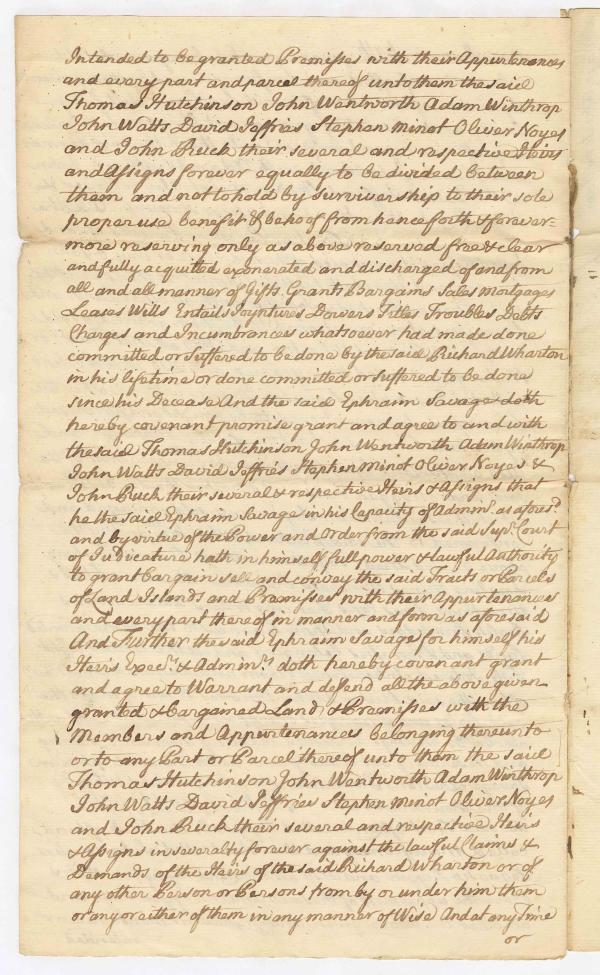 Intended to be granted Premisses with their Appurtenances
and every part and parcel thereof unto them the said
Thomas Hutchinson John Wentworth Adam Winthrop
John Watts David Jeffries Stephen Minot Oliver Noyes
and John Ruck their several and respective Heirs
and Assigns forever equally to be divided between
them and not to hold by surviver ship to their sole
proper use benefit & behoof from hence forth & forever=
more reserving only as above reserved free & clear
and fully acquitted exonerated and discharged of and from
all and all manner of Gifts Grants Bargains Sales Mortgages
Leases Wills Entails Joyntures Dowers Titles Troubles Debts
Charges and Incumbrances whatsoever had made done
committed or suffered to be done by the said Richard Wharton
in his lifetime or done committed or suffered to be done
since his Decease And the said Ephraim Savage doth
hereby covenant promise grant and agree to and with
the said Thomas Hutchinson John Wentworth Adam Winthrop
John Watts David Jeffries Stephen Minot Oliver Noyes &
John Ruck their several & respective Heirs & Assigns that
he the said Ephraim Savage in his Capacity of Admr. as afores.d
and by virtue of the Power and Order from the said Supr. Court
of Judicature hath in himself full power & lawful Authority
to grant bargain sell and convey the said Tracts or Parcels
of Land Islands and Premisses with their Appurtenances
and every part thereof in manner and form as aforesaid
And Further the said Ephraim Savage for himself his
Heirs Execrs. & Adminrs. doth hereby covenant grant
and agree to Warrant and defend all the above given
granted & bargained Land & Premisses with the
Members and Appurtenances belonging thereunto
or to any Part or Parcel thereof unto them the said
Thomas Hutchinson John Wentworth Adam Winthrop
John Watts David Jeffries Stephen Minot Oliver Noyes
and John Ruck their several and respective Heirs
& Assigns in severalty forever against the lawful Claims &
Demands of the Heirs of the said Richard Wharton or of
any other Person or Persons from by or under him them
or any or either of them in any manner of Wise And at any Time
or